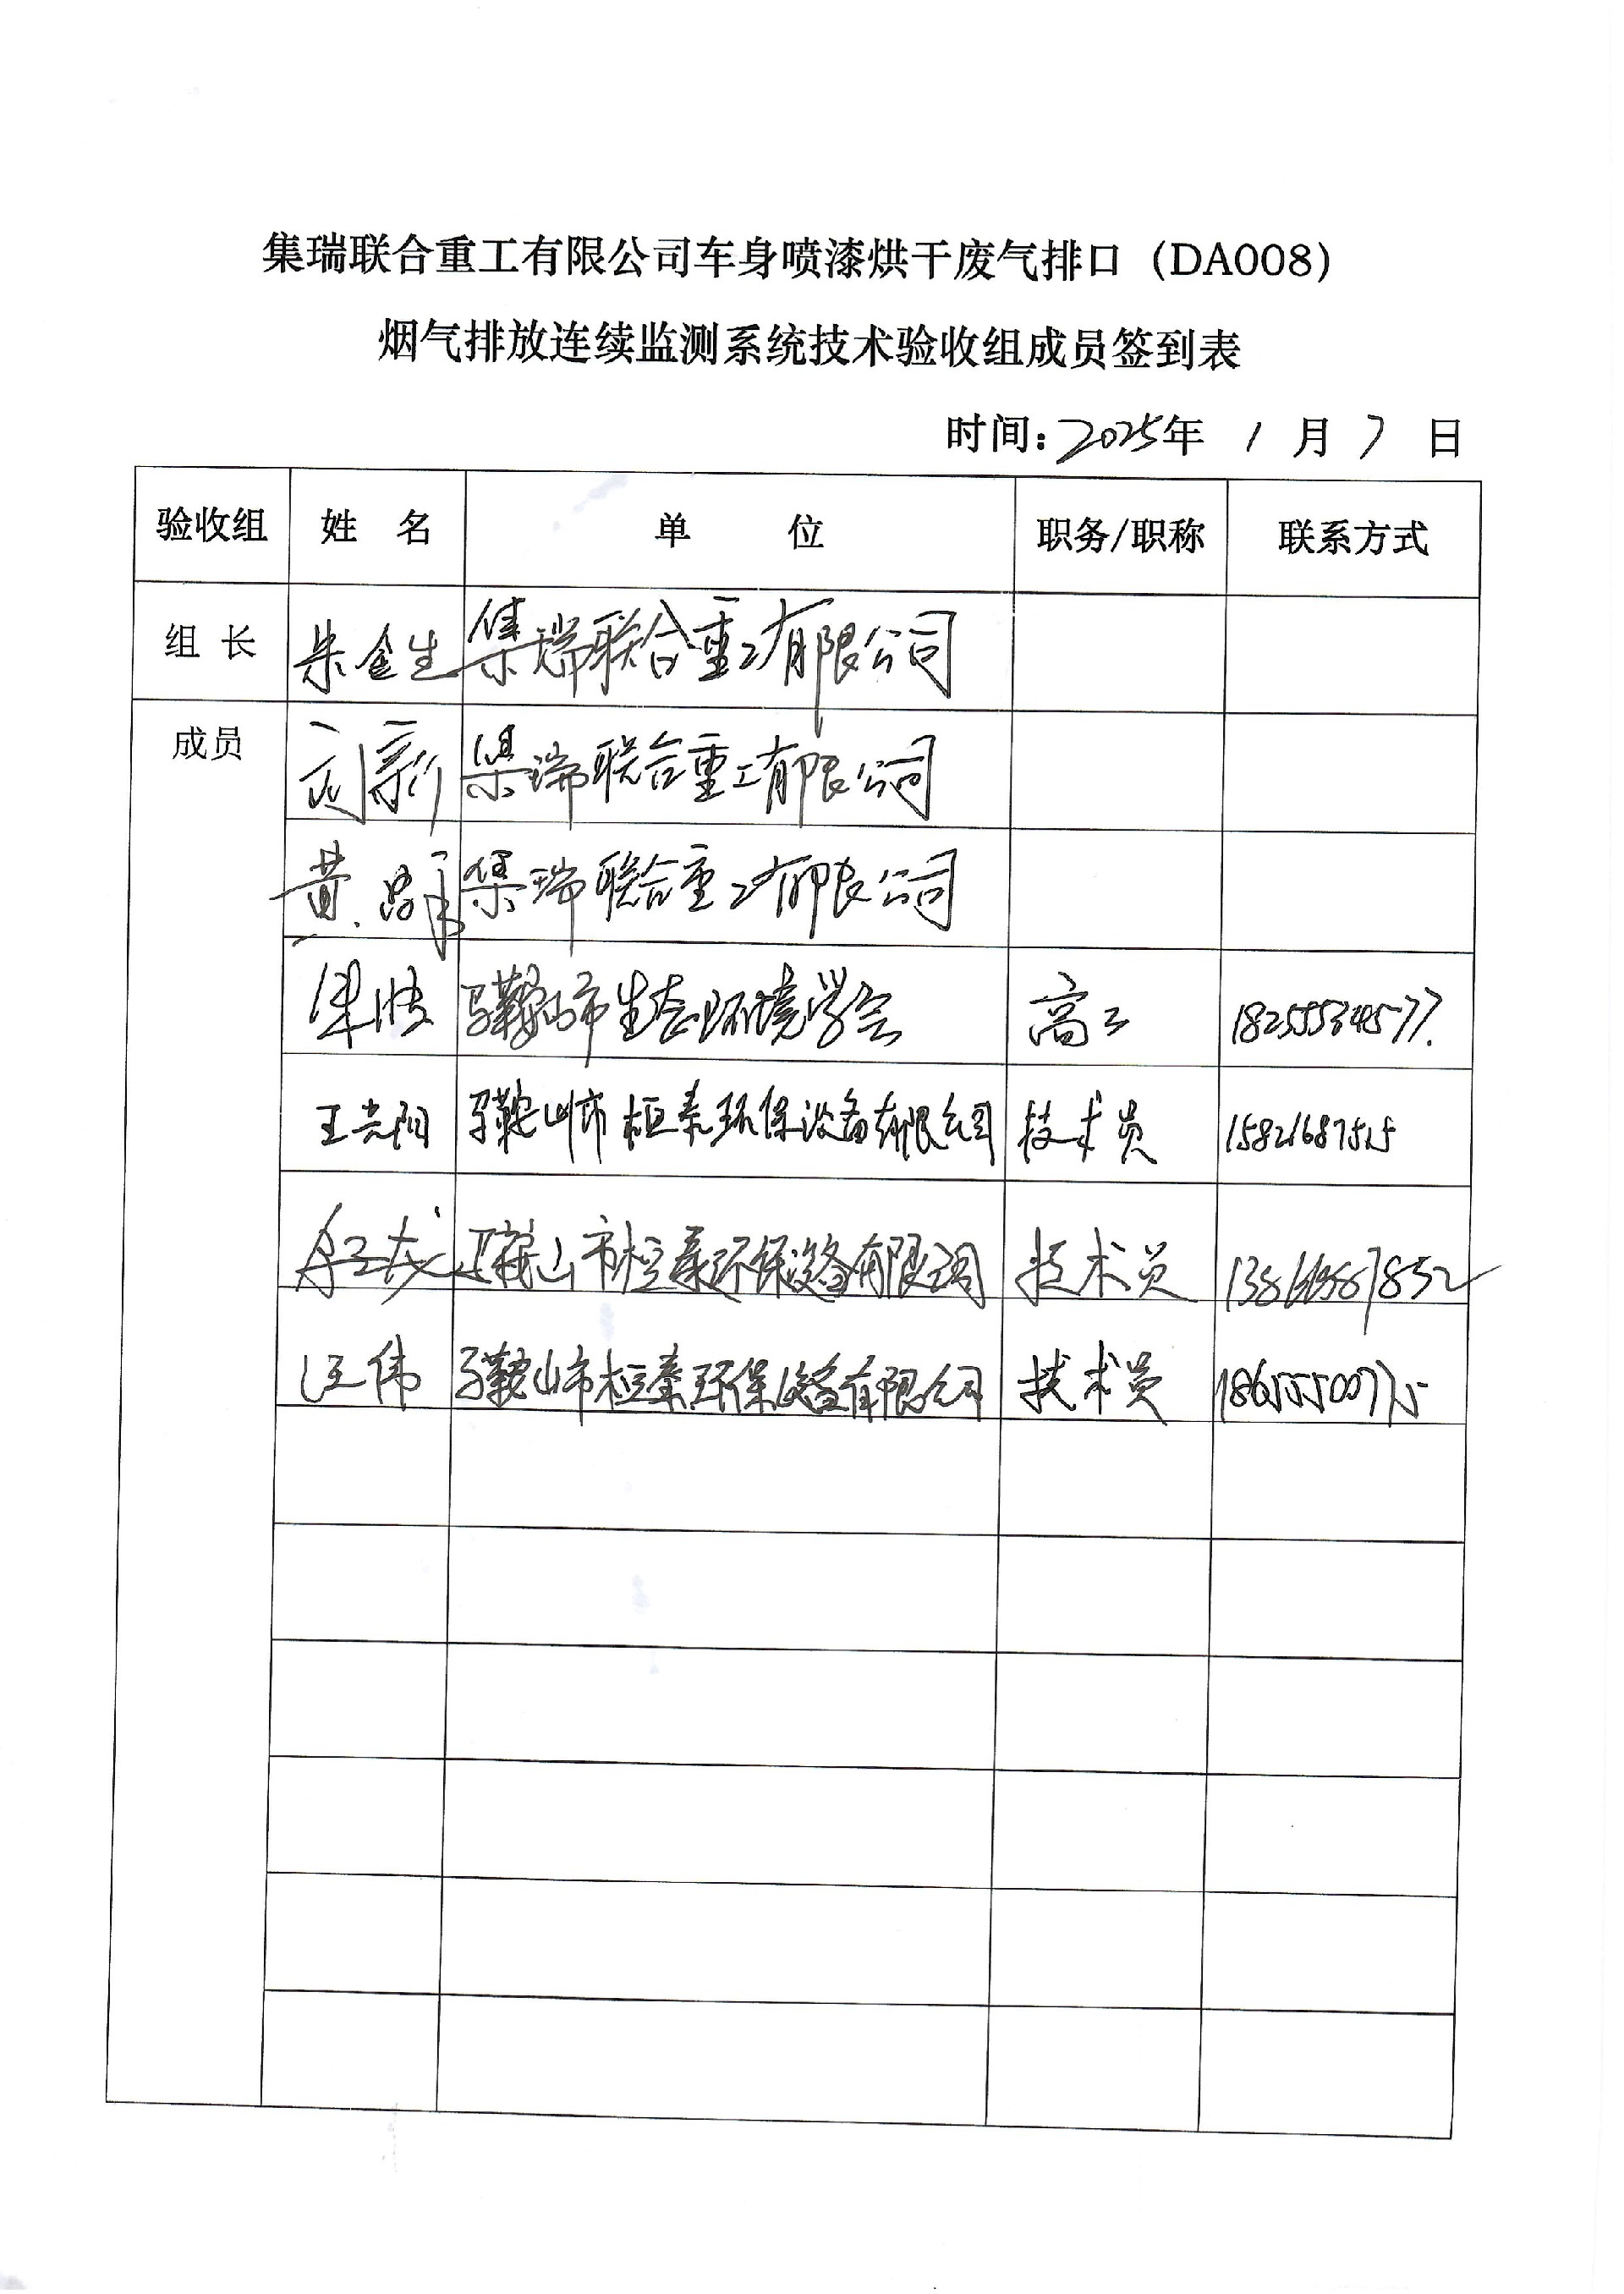 集瑞联合重工有限公司车身喷漆烘干废气排口（DA008）
烟气排放连续监测系统技术验收组成员签到表
时间：2025年 1 月 7 日
验收组 姓 名 单 位 职务/职称 联系方式
组 长 朱金生 集瑞联合重工有限公司
成员 刘新 集瑞联合重工有限公司
黄 集瑞联合重工有限公司
马鞍山市生态环境学会 高工 18255534577.
王光阳 马鞍山市桓泰环保设备有限公司 技术员 15821687515
马鞍山市桓泰环保设备有限公司 技术员
汪伟 马鞍山市桓泰环保设备有限公司 技术员 18655500775